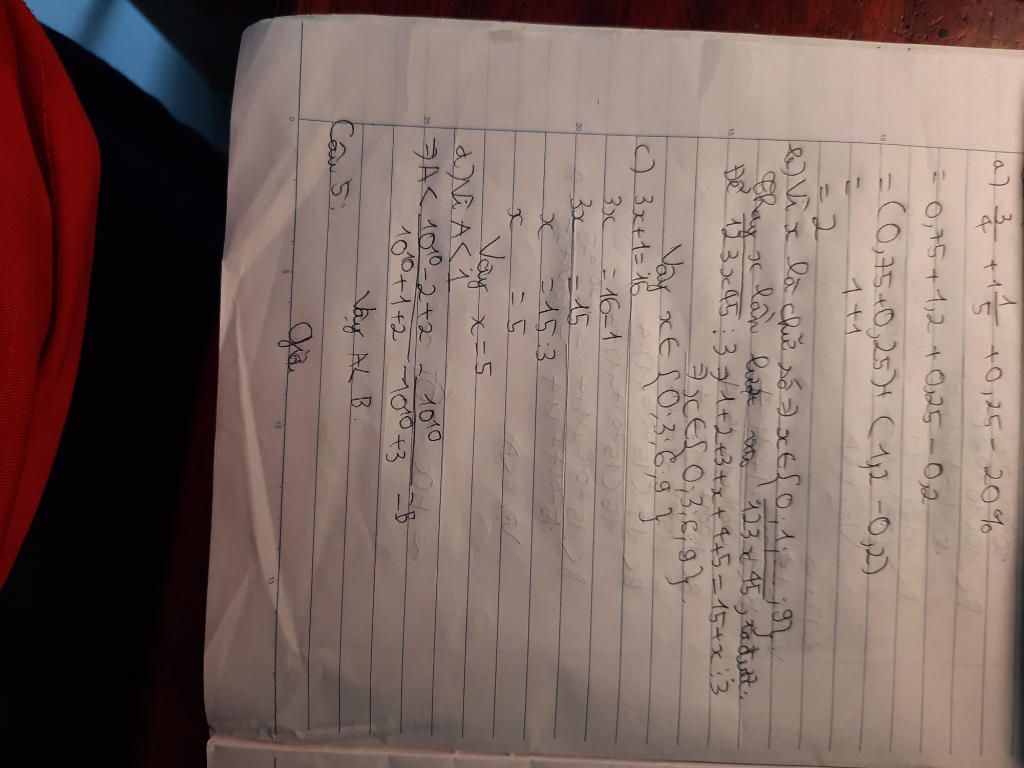 a) 3/4 + 1 1/5 + 0,25 - 20%
= 0,75 + 1,2 + 0,25 - 0,2
= (0,75 + 0,25) + (1,2 - 0,2)
= 1 + 1
= 2
b) Vì x là chữ số => x ∈ {0, 1, ...; 9}
Thay x lần lượt 123x45,
Để 123x45 ⋮ 3 => 1 + 2 + 3 + x + 4 + 5 = 15 + x ⋮ 3
=> x ∈ {0, 3, 6, 9}.
Vậy x ∈ {0; 3; 6; 9}
c) 3x + 1 = 16
3x = 16 - 1
3x = 15
x = 15 : 3
x = 5
Vậy x = 5
d) Vì A < 1
=> A < 10^10 - 2 + 2 / 10^10 + 1 + 2 = 10^10 / 10^10 + 3 = B
Vậy A < B.
Câu 5:
Giải